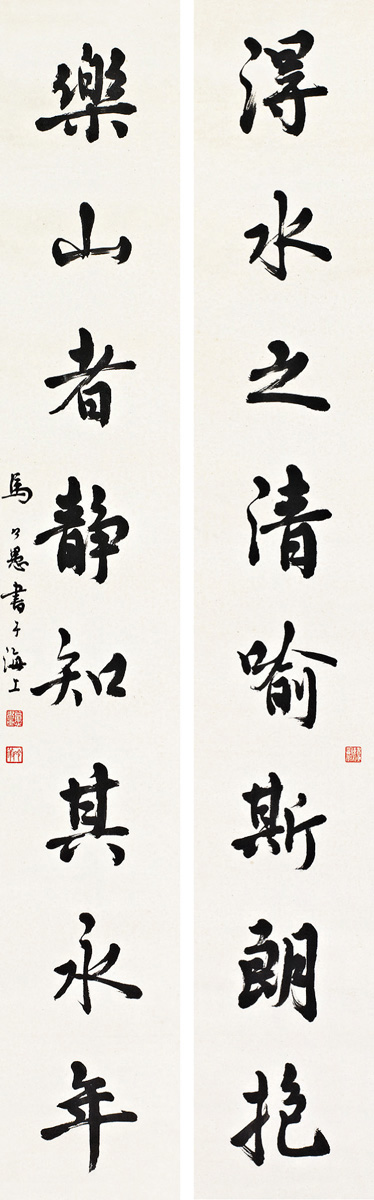 得水之清喻斯朗抱
樂山者靜知其永年
馬公愚書于海上